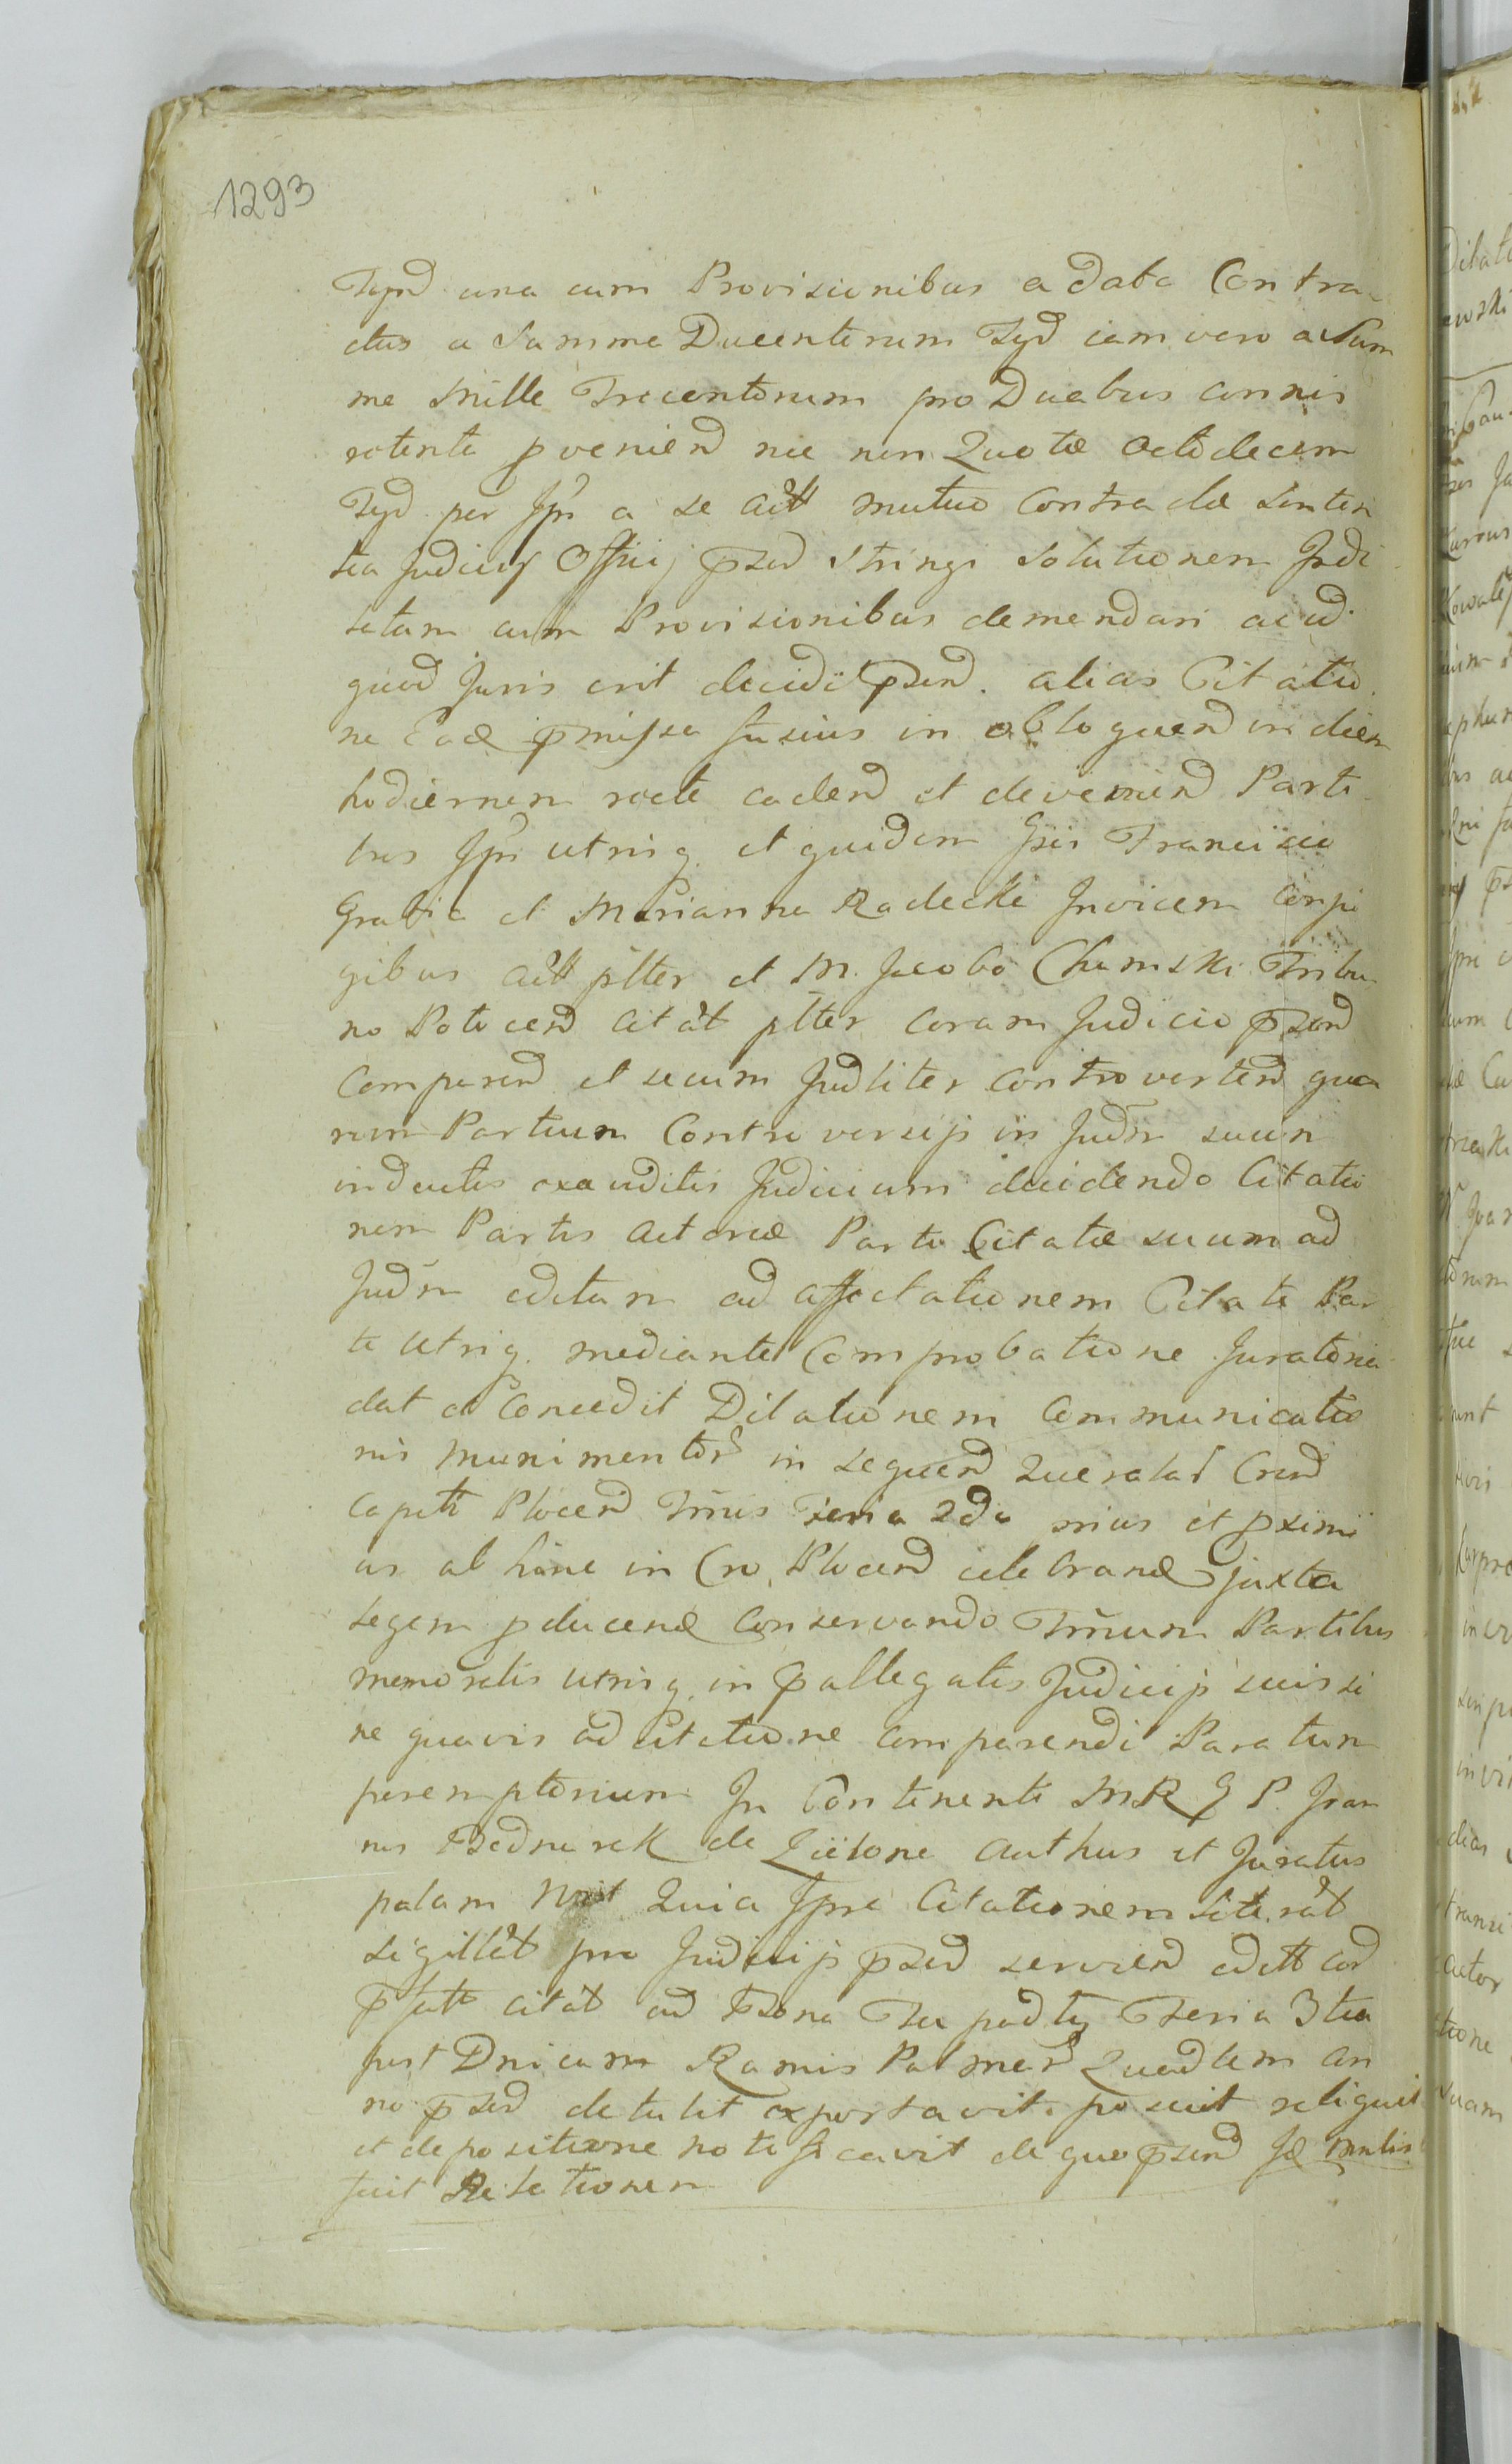 1293
Tynd una cum Provisionibus a Data Contra
ctus a Summa Ducentorum Tyd iam vero a Sum
ma Mille Trecentorum pro Duabus annis
retenta pvenien nec non Quotæ Octodecem
Tyd per Ipn a se act mutuo Contractæ Senten
tia Judicij Officij psen stringi Solutionem Indi
latam cum Provisionibus demandari ac id
quod Juris erit decidi psend. alias Citatio
ne Eade pmissa fusius in obloquend in diem
hodiernam recte cadend et deveniend Parti
bus Ipn utrisq. et quidem Gsis Francisco
Grabia et Marianna Radecka Invicem Conju
gibus act plter et M. Jacobo Chamski Tribu
no Plocend citat plter coram Judicio psend
Comparend et secum Judliter controvertend qua
rum Partium Controversijs in Judm suum
inductis exauditis Judicium decidendo Citatio
nem Partis Actoreæ Parti Citatæ suum ad
Judm editam ad affectationem Citatæ Par
te Utrisq. mediante Comprobatione Juratoria
dat et Concedit Dilationem Communicatio
nis Munimentor in sequend Querelar Crend
Capetl Plocend Trmis Feria 2da prius et pximi
us ab hinc in Cro. Plocend celebrand juxta
Legem pducend Conservando Trmum Partibus
memoratis utrisq. in pallegatis Judicijs suis si
ne quavis adcitatione Comparendi Paratum
peremptorium In Continenti MR G P. Joan
nes Bednarek de authus et Juratus
palam Quia Ipse Citationem Literat
sigillat pro Judicijs psed serviend edtt cor
pfatt citat ad Bona Feria 3tia
post Dnicam Ramis Palmar Quadlem An
no psed detulit exportavit. posuit reliquit
et depositione notificavit de quo psend
fecit Relationem